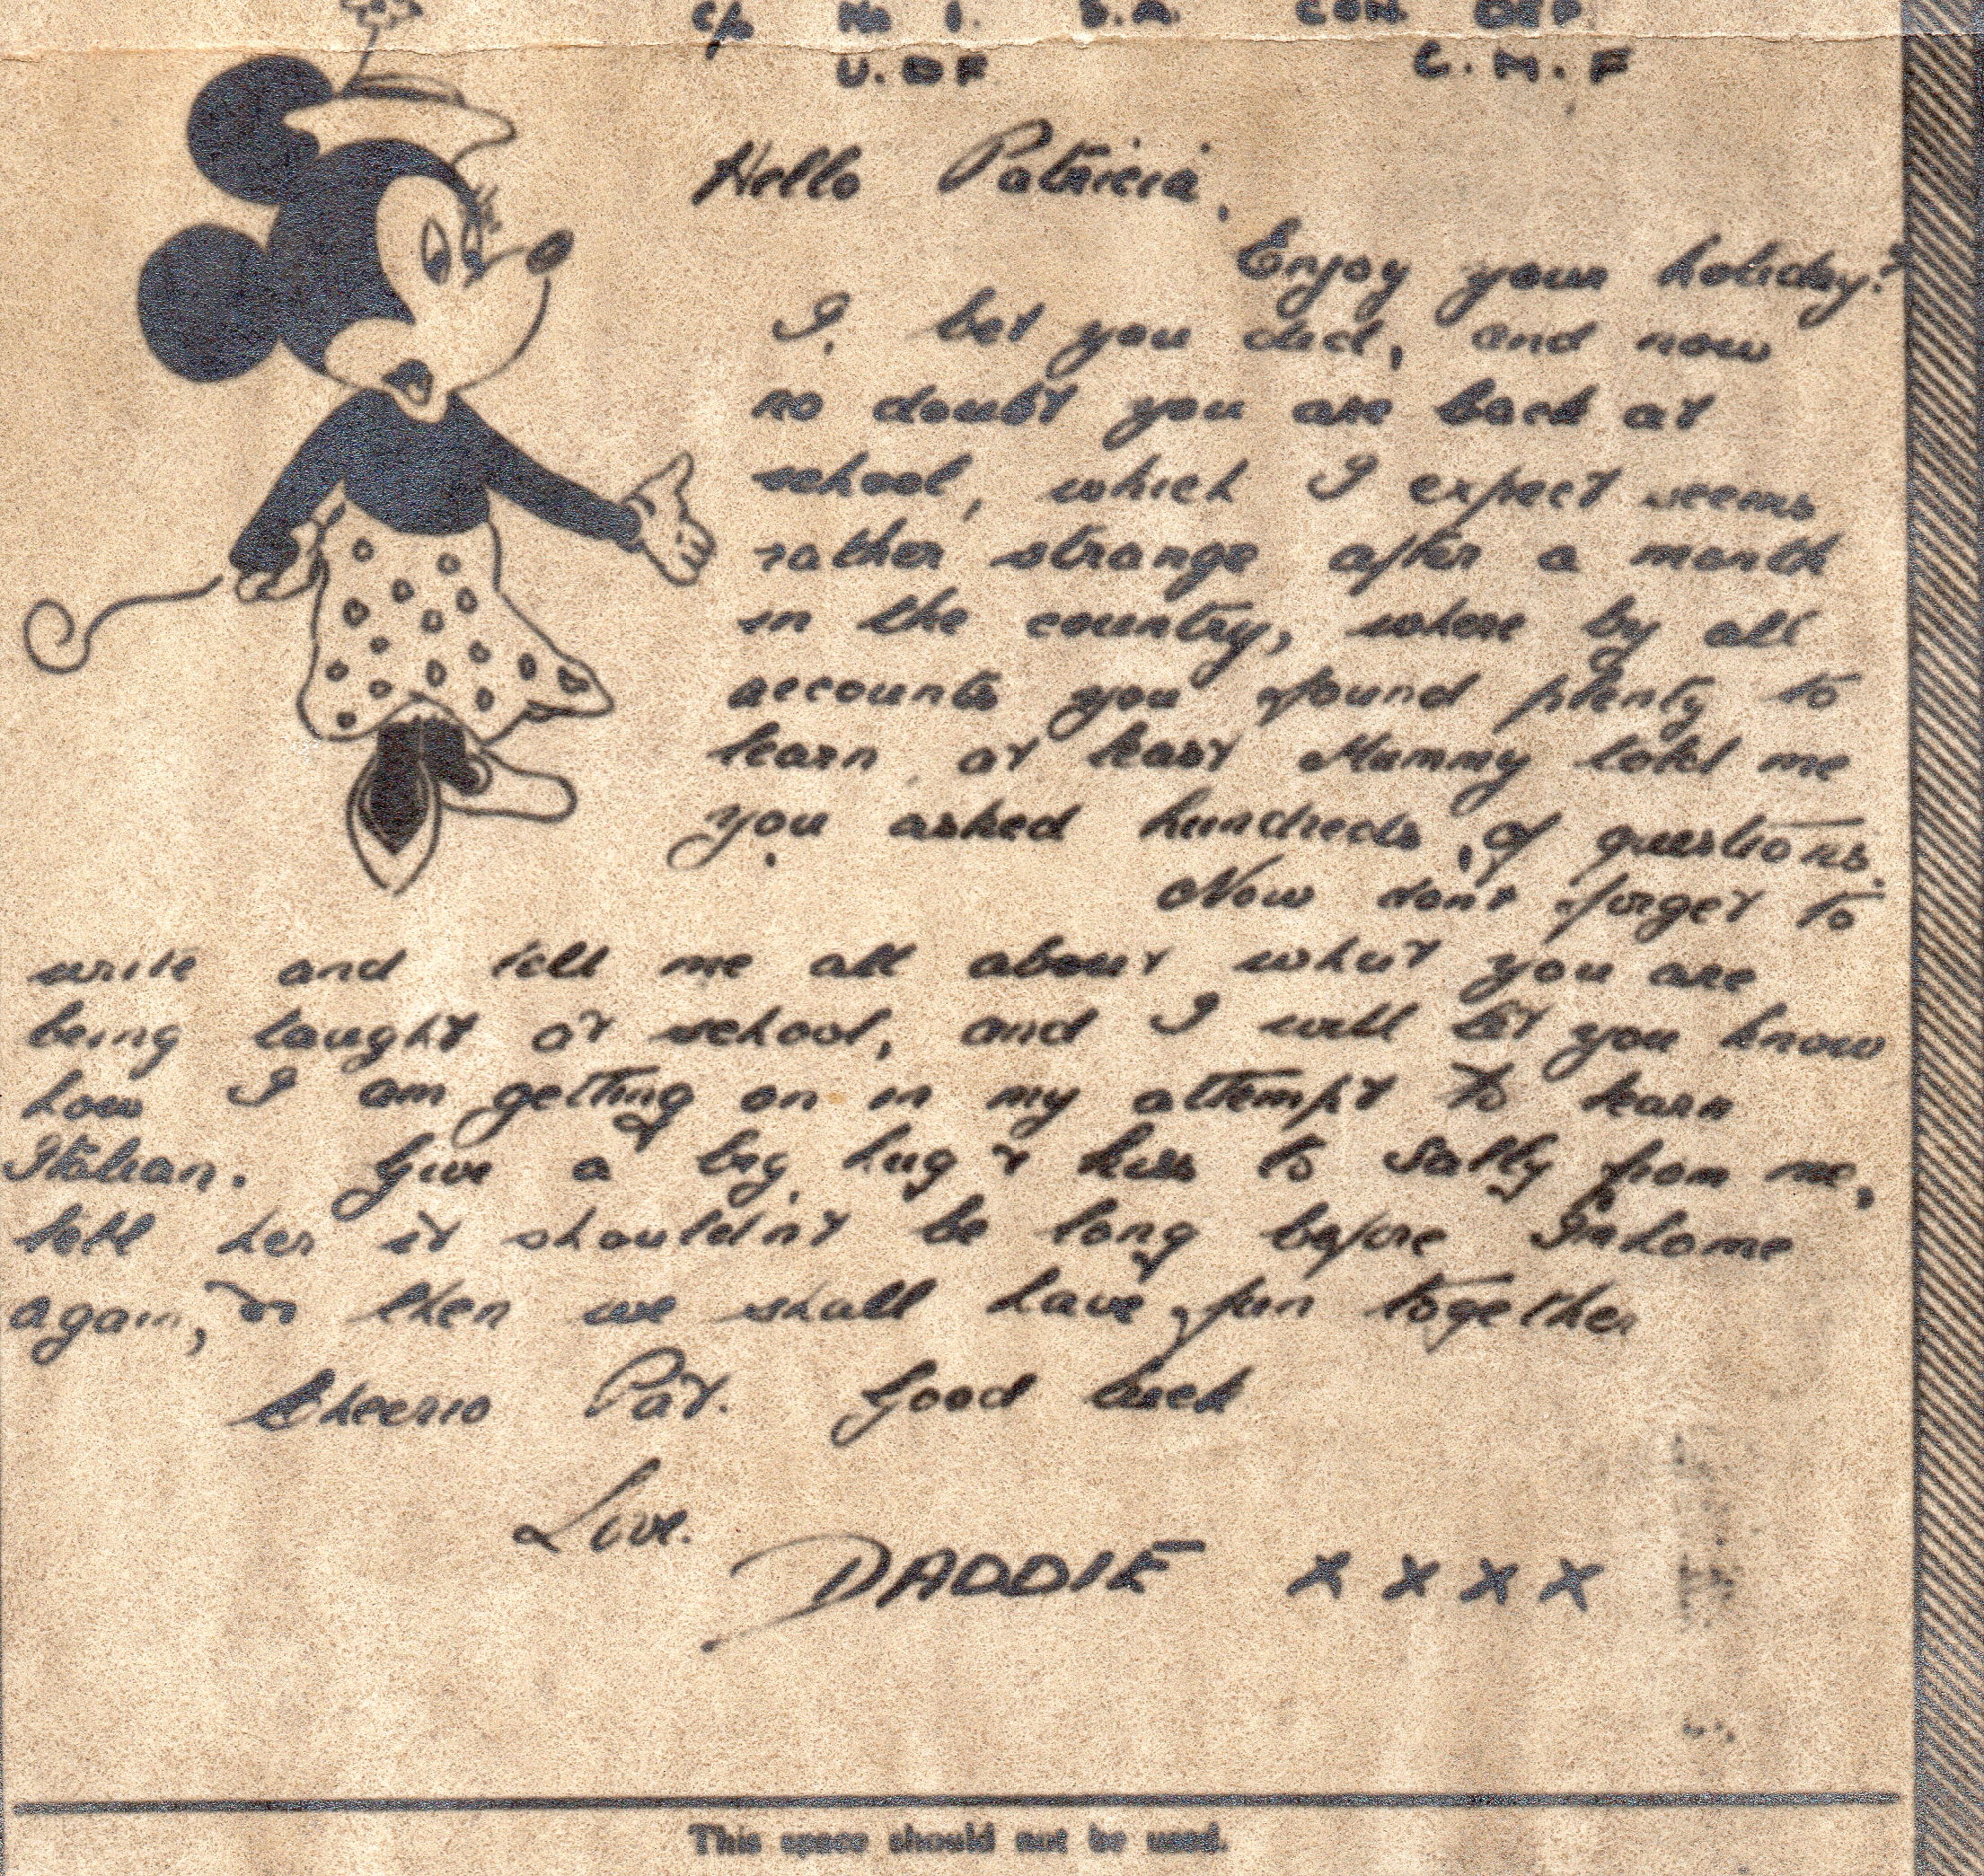 c/o No 1. S.A. CON. DEP
U.DF C.M.F
Hello Patricia,
Enjoy your holiday?
I bet you did, and now
no doubt you are back at
school, which I expect seems
rather strange after a month
in the country, where by all
accounts you found plenty to
learn, at least Mummy told me
you asked hundreds of questions.
Now dont forget to
write and tell me all about what you are
being taught at school, and I will let you know
how I am getting on in my attempt to learn
Italian. Give a big hug & kiss to Sally from me,
tell her it shouldn't be long before I'm home
again, & then we shall have fun together
Cheerio Pat. Good luck
Love.
DADDIE x x x x
This space should not be used.